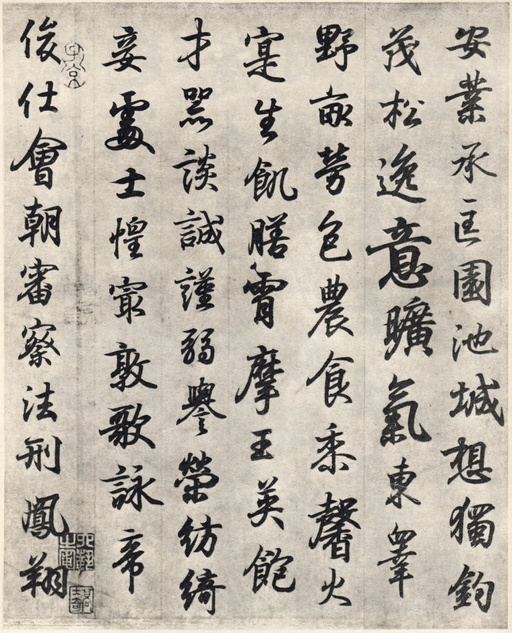 安業承匡園池城想獨釣
茂松逸意曠氣東睪
野畝芳包農食黍馨火
寔生飢膳霄摩王英飽
才器談誠謹弱譽榮紡綺
妾處士惶寂敦歌詠帝
俊仕會朝審察法刑鳳翔
子京